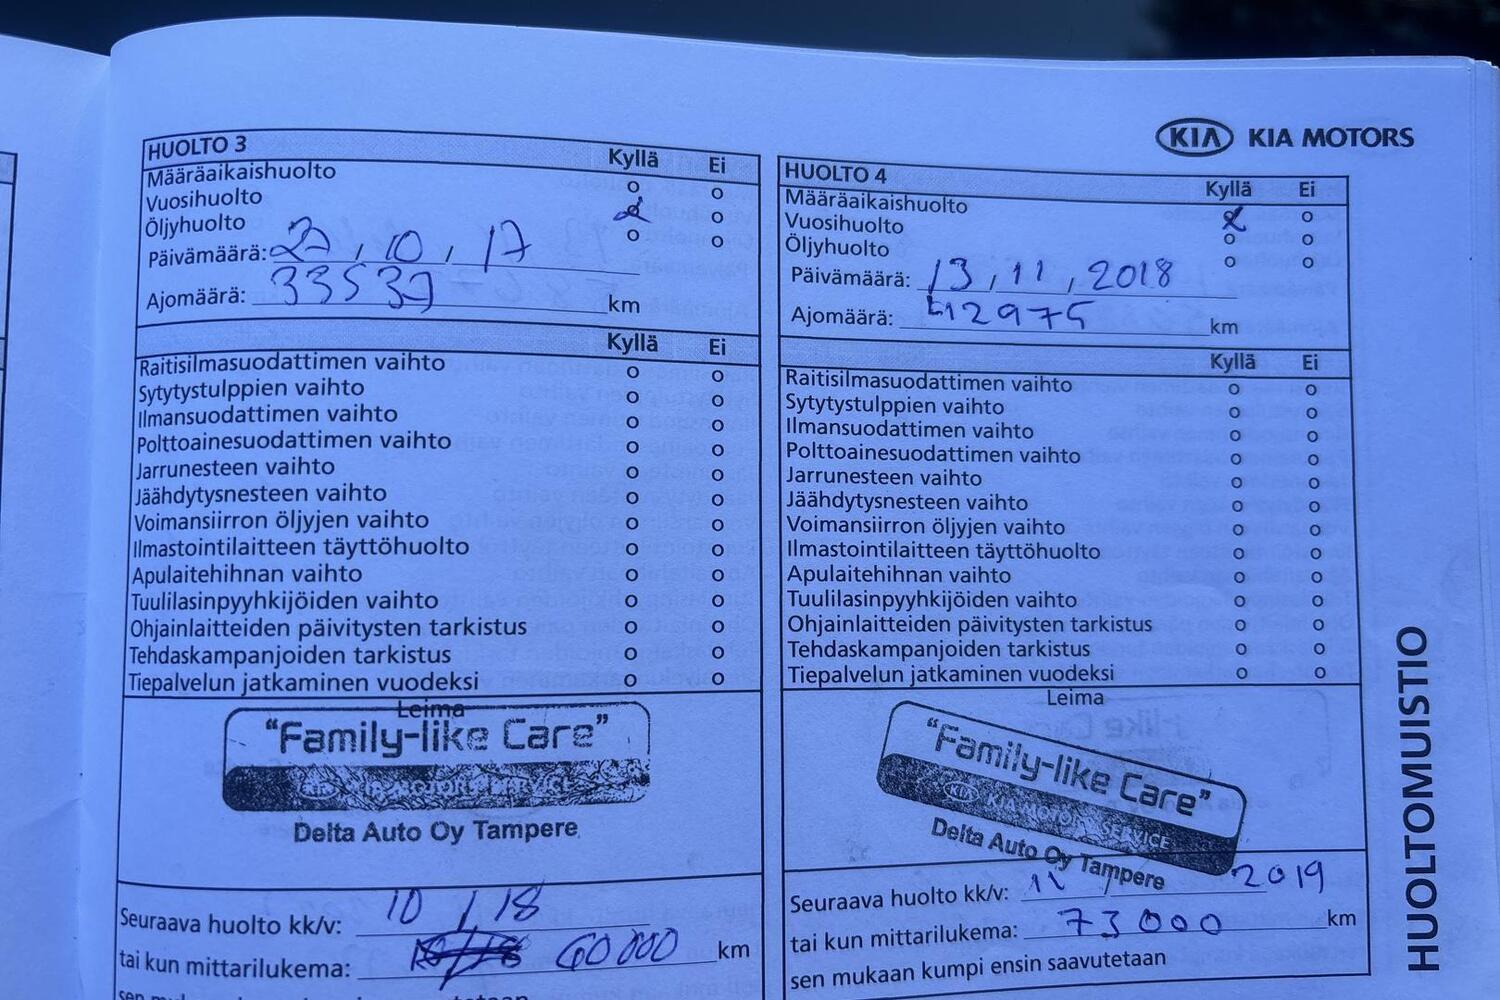 KIA KIA MOTORS
HUOLTO 3
Kyllä Ei
Määräaikaishuolto o o
Vuosihuolto o
Öljyhuolto o o
Päivämäärä: 27, 10, 17
Ajomäärä: 33537 km
Kyllä Ei
Raitisilmasuodattimen vaihto o o
Sytytystulppien vaihto o o
Ilmansuodattimen vaihto o o
Polttoainesuodattimen vaihto o o
Jarrunesteen vaihto o o
Jäähdytysnesteen vaihto o o
Voimansiirron öljyjen vaihto o o
Ilmastointilaitteen täyttöhuolto o o
Apulaitehihnan vaihto o o
Tuulilasinpyyhkijöiden vaihto o o
Ohjainlaitteiden päivitysten tarkistus o o
Tehdaskampanjoiden tarkistus o o
Tiepalvelun jatkaminen vuodeksi o o
Leima
"Family-like Care"
Delta Auto Oy Tampere
Seuraava huolto kk/v: 10 / 18
tai kun mittarilukema: 60 000 km
HUOLTO 4
Kyllä Ei
Määräaikaishuolto x o
Vuosihuolto o o
Öljyhuolto o o
Päivämäärä: 13, 11, 2018
Ajomäärä: 42975 km
Kyllä Ei
Raitisilmasuodattimen vaihto o o
Sytytystulppien vaihto o o
Ilmansuodattimen vaihto o o
Polttoainesuodattimen vaihto o o
Jarrunesteen vaihto o o
Jäähdytysnesteen vaihto o o
Voimansiirron öljyjen vaihto o o
Ilmastointilaitteen täyttöhuolto o o
Apulaitehihnan vaihto o o
Tuulilasinpyyhkijöiden vaihto o o
Ohjainlaitteiden päivitysten tarkistus o o
Tehdaskampanjoiden tarkistus o o
Tiepalvelun jatkaminen vuodeksi o o
Leima
"Family-like Care"
KIA KIA MOTORS SERVICE
Delta Auto Oy Tampere
Seuraava huolto kk/v: 11 / 2019
tai kun mittarilukema: 73000 km
sen mukaan kumpi ensin saavutetaan
HUOLTOMUISTIO